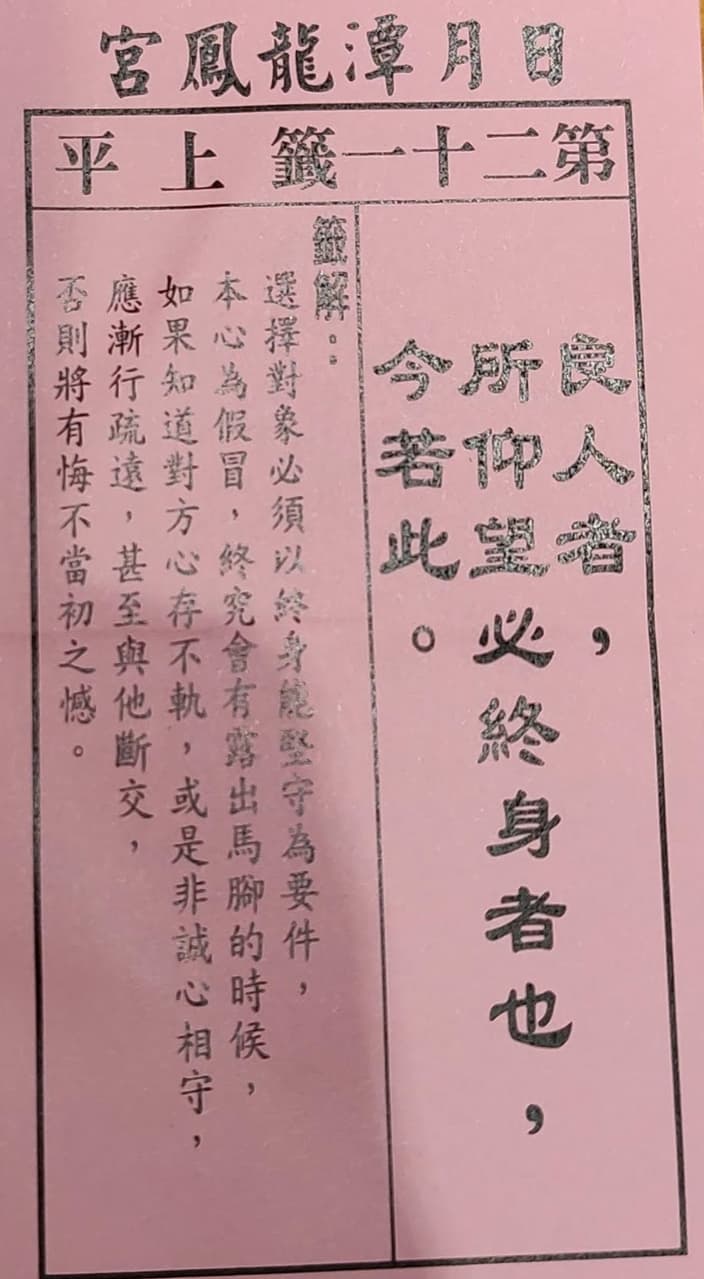 日月潭龍鳳宮
第二十一籤 上平
良人者，
所仰望必終身者也，
今若此。
籤解：
選擇對象必須以終身能堅守為要件，
本心為假冒，終究會有露出馬腳的時候，
如果知道對方心存不軌，或是非誠心相守，
應漸行疏遠，甚至與他斷交，
否則將有悔不當初之憾。